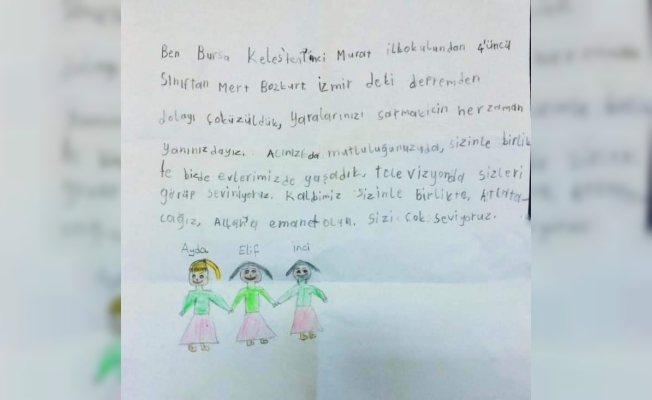 Ben Bursa Keles'ten inci Murat ilkokulundan 4'üncü
Sınıftan Mert Bozkurt İzmir deki depremden
dolayı çoküzüldük, yaralarınızı sarmakicin herzaman
yanınızdayız. Acınızıda mutluluğunuzuda, sizinle birlik
te bizde evlerimizde yaşadık, televizyonda sizleri
görüp seviniyoruz. Kalbimiz sizinle birlikte, Atlata-
cağız, Allah'a emanet olun. Sizi çok seviyoruz.
Ayda Elif inci